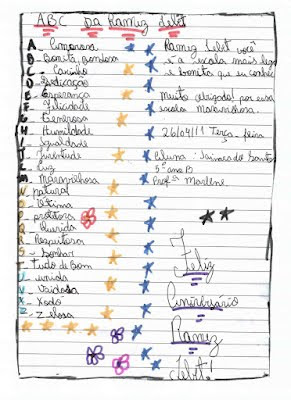 ABC da Ramez Tebet
A - Amorosa
B - Bonita, bondosa
C - Carinho
D - Dedicação
E - Esperança
F - Felicidade
G - Generosa
H - Humildade
I - Igualdade
J - Juventude
L - Luz
M - Maravilhosa
N - natural
O - Otima
P - protetora
Q - Querida
R - Respeitosa
S - Sonhar
T - Tudo de Bom
U - unida
V - Vaidosa
X - Xodó
Z - Zelosa
Ramez Tebet você
é a escola mais legal
e bonita que eu conheci
Muito obrigado! por essa
escola Maravilhosa.
26/04/11 Terça-feira
Aluna: Jaimara do Santos
5º ano B
Profª Marlene
Feliz
Aniversario
Ramez
Tebet!